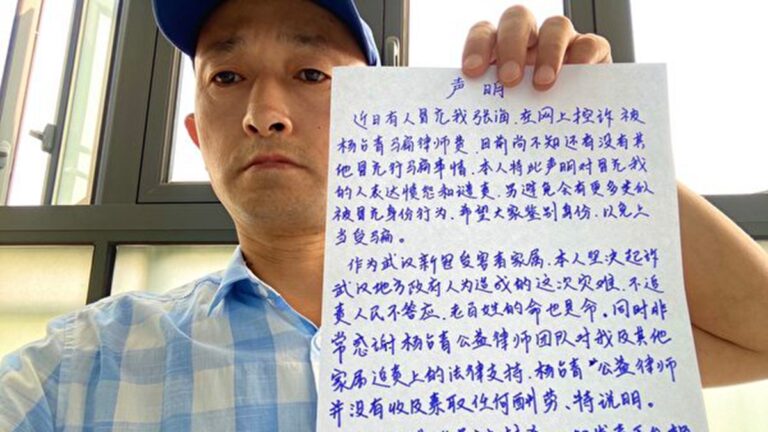 声明
近日有人冒充我张海,在网上控诉被
杨占青骗律师费,目前尚不知还有没有其
他冒充行骗事情,本人特此声明对冒充我
的人表达愤怒和谴责,另避免会有更多类似
被冒充身份行为,希望大家鉴别身份,以免上
当受骗。
作为武汉新冠受害者家属,本人坚决起诉
武汉地方政府人为造成的这次灾难,不追
责人民不答应,老百姓的命也是命。同时非
常感谢杨占青公益律师团队对我及其他
家属追责上的法律支持,杨占青“公益律师
并没有收及索取任何酬劳、特说明。